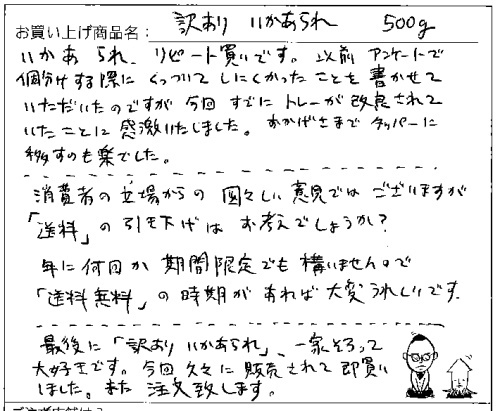 お買い上げ商品名: 訳あり いかあられ 500g
いかあられ、リピート買いです。以前 アンケートで
個分けする際に くっついて しにくかったことを 書かせて
いただいたのですが 今回 すでに トレーが 改良されて
いたことに 感激いたしました。おかげさまで タッパーに
移すのも 楽でした。
消費者の 立場からの 図々しい 意見では ございますが
「送料」の 引き下げは お考えでしょうか?
年に 何回か 期間限定でも 構いませんので
「送料無料」の 時期が あれば 大変 うれしいです。
最後に「訳あり いかあられ」、一家そろって
大好きです。今回 久々に 販売されて 即買い
しました。また 注文致します。